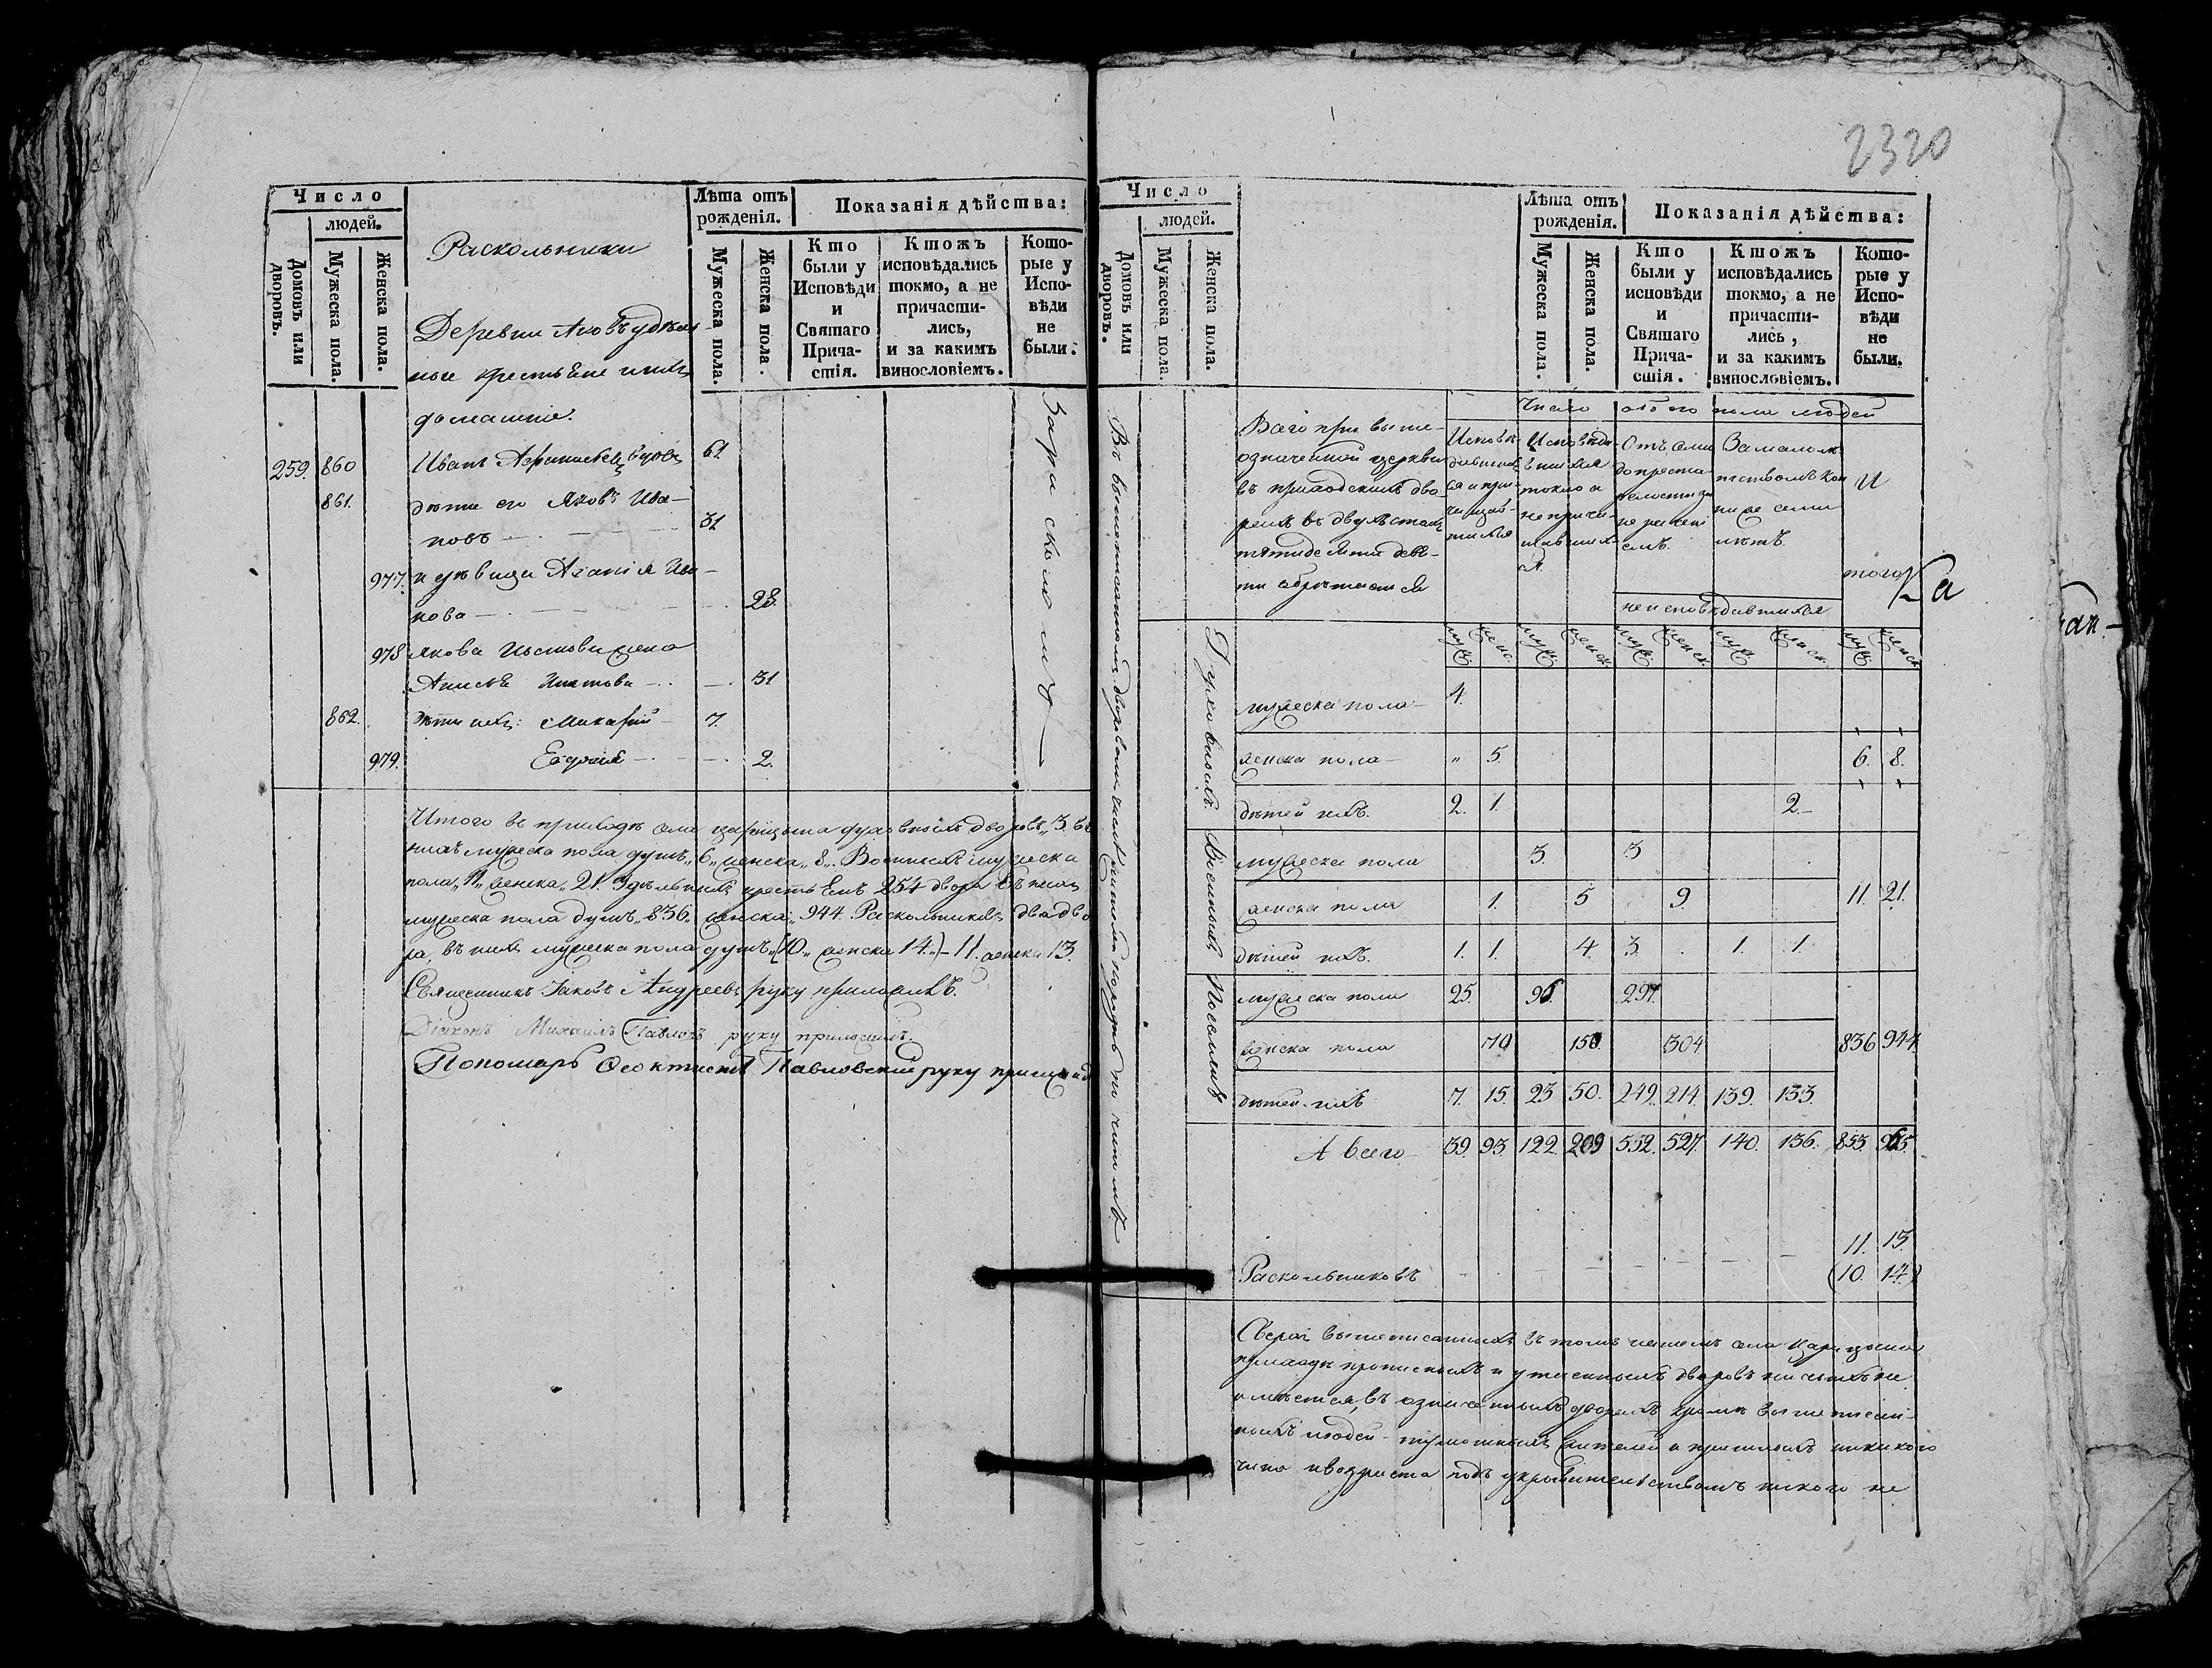 Число
людей.
Домовъ или дворовъ.
Мужеска пола.
Женска пола.
Раскольники
Лѣта отъ рожденія.
Мужеска пола.
Женска пола.
Показанія дѣйства:
Кто были у Исповѣди и Святаго Прича-стія.
Ктожъ исповѣдались токмо, а не причасти-лись, и за какимъ винословіемъ.
Кото-рые у Испо-вѣди не были.
Деревни удѣль
ные крестьяне и ихъ
домашніе.
259. 860 Иванъ вдовъ 61.
861. дѣти его Яковъ Ива-
новъ 31
977. и дѣвица Агапія Ива-
нова 28.
978 Якова
31
862. дѣти ихъ: Макарій 7.
979. Евдокія 2.
За расколомъ
Итого въ приходѣ села Царицына духовныхъ дворовъ „3. въ
нихъ мужеска пола душъ „6„ женска „8„. Военныхъ мужеска
пола „11„ женска „21. Удѣльныхъ крестьянъ 254 двора въ нихъ
мужеска пола душъ „836„ женска „944. Раскольниковъ два дво
ра, въ нихъ мужеска пола душъ „(10„ женска 14.„) – 11. женска 13.
Священникъ Іаковъ Андреевъ руку приложилъ.
Діаконъ Михаилъ Павловъ руку приложилъ.
Пономарь Ѳеоктистъ Павловскій руку
2320
Число
людей.
Домовъ или дворовъ.
Мужеска пола.
Женска пола.
Лѣта отъ рожденія.
Мужеска пола.
Женска пола.
Показанія дѣйства:
Кто были у исповѣди и Святаго Прича-стія.
Ктожъ исповѣдались токмо, а не причасти-лись, и за какимъ винословіемъ.
Кото-рые у Испо-вѣди не были.
Число обоего пола людей
Всего при выше-
означенной церкви
въ приходскихъ дво-
рахъ въ двухъстахъ
пятидесяти девя-
ти обрѣтается
Исповѣ-
давших-
ся и при-
чащав-
шихся
Исповѣда-
вшихся
токмо а
не прича-
щавших-
ся
Отъ семи
до преста-
релости
За малолѣ-
тствомъ кои
ниже семи
лѣтъ.
И
того
неисповѣдавшихся
муж. женс. муж. женск. муж. женск. муж. женск. муж. женск.
Духовныхъ.
мужеска пола 4.
женска пола „ 5. 6. 8.
дѣтей ихъ. 2. 1. 2.
Военныхъ
мужеска пола 3. 3
женска пола 1. 5 9 11. 21.
дѣтей ихъ. 1. 1. 4. 3. 1. 1.
мужеска пола 25. 96. 297.
женска пола 70 150. 304 836 944.
дѣтей ихъ 7. 15. 23 50. 249. 214. 139. 133.
А всего 39. 93. 122. 209 552. 527. 140. 136. 853.
11. 13.
Раскольниковъ (10. 14.)
Сверхъ вышеписанныхъ въ томъ нашемъ села Царицына
приходѣ прописныхъ и утаенныхъ дворовъ ни чьихъ не
имѣется, въ означенныхъ дворахъ кромѣ вышеписан-
ныхъ людей тутошныхъ жителей и пришлыхъ никакого
чина и возраста подъ укрывательствомъ никого не